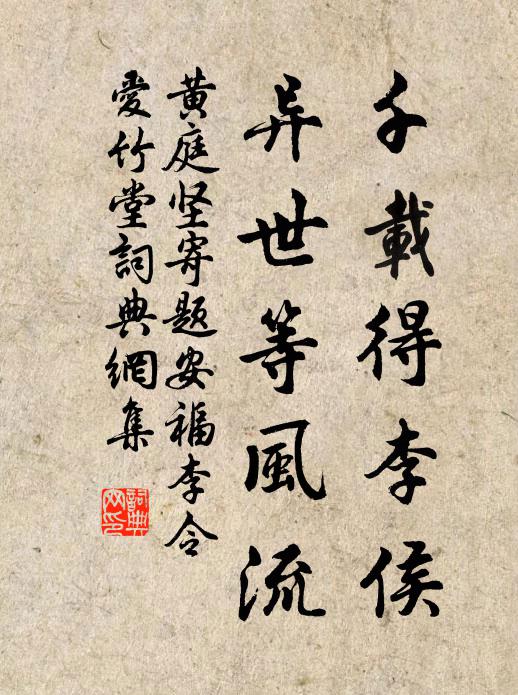 千載得李侯
异世等風流
黄庭坚寄題安福李令
愛竹堂詞典網集
詞典网印